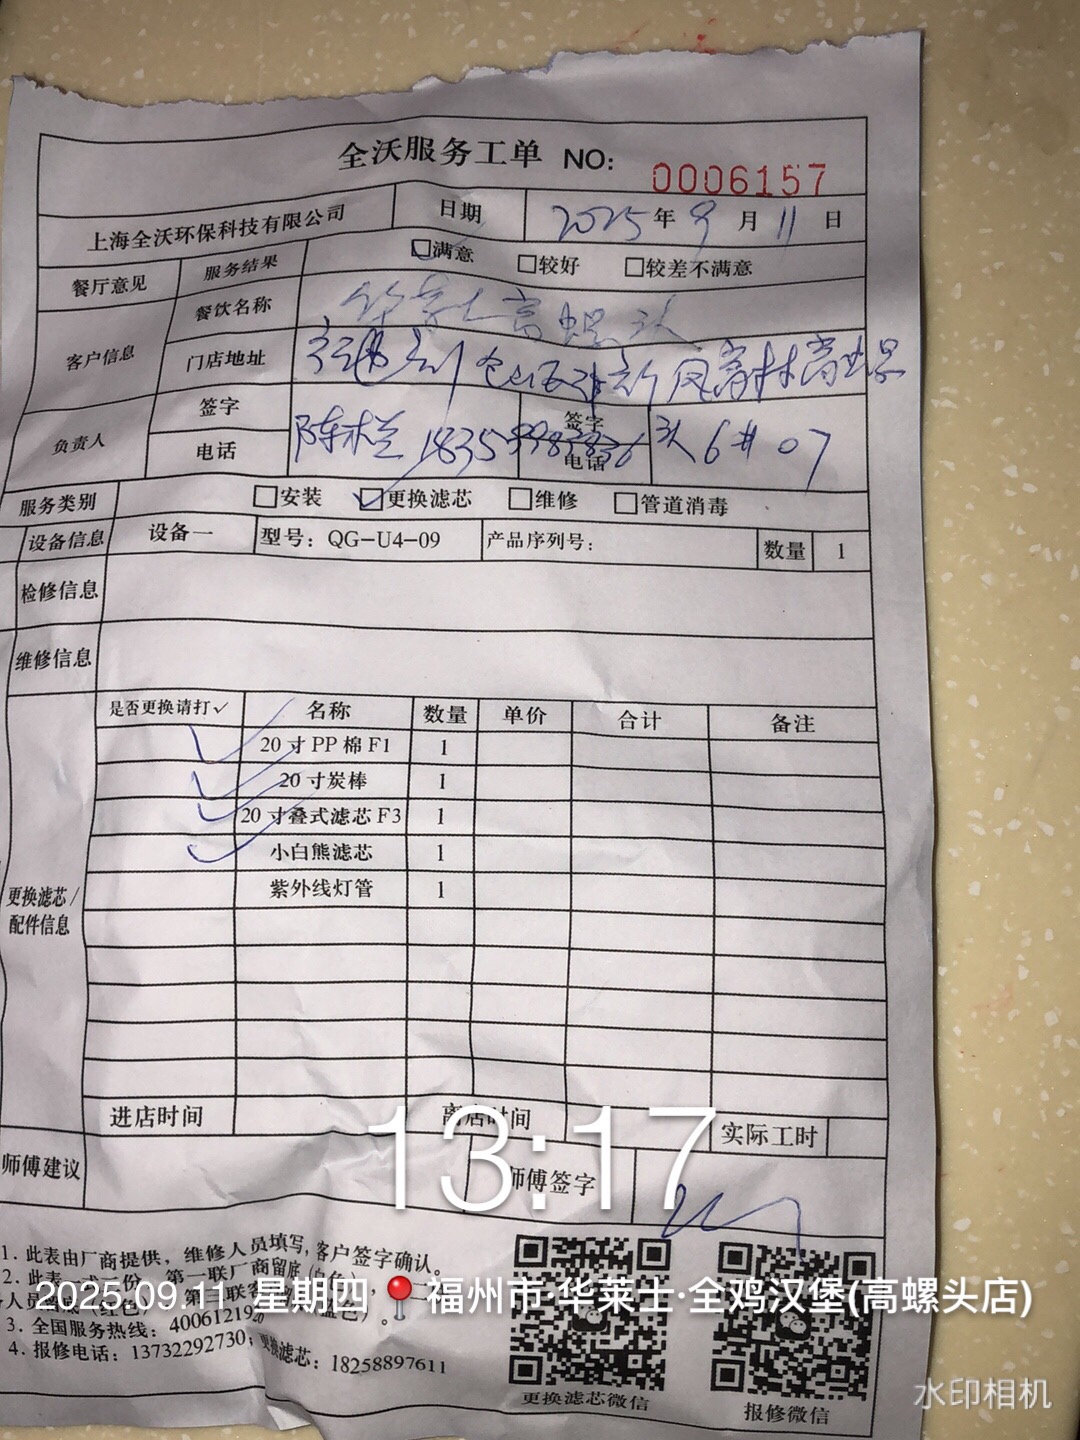 全沃服务工单 NO: 0006157
上海全沃环保科技有限公司 日期 2025年9月11日
餐厅意见 服务结果 □满意 □较好 □较差不满意
客户信息 餐饮名称 华莱士高螺头
门店地址 仓山区 高螺
负责人 签字 签字
电话 陈 电话 头6#07
服务类别 □安装 ☑更换滤芯 □维修 □管道消毒
设备信息 设备一 型号：QG-U4-09 产品序列号： 数量 1
检修信息
维修信息
是否更换请打✓ 名称 数量 单价 合计 备注
✓ 20寸PP棉F1 1
✓ 20寸炭棒 1
✓ 20寸叠式滤芯F3 1
✓ 小白熊滤芯 1
紫外线灯管 1
更换滤芯/
配件信息
进店时间 离店时间 实际工时
13:17
师傅建议 师傅签字
1. 此表由厂商提供，维修人员填写，客户签字确认。
2. 此表一式二份，第一联厂商留底
2025.09.11 星期四 福州市·华莱士·全鸡汉堡(高螺头店)
3. 全国服务热线：4006121920
4. 报修电话：13732292730；更换滤芯：18258897611
更换滤芯微信 报修微信
水印相机